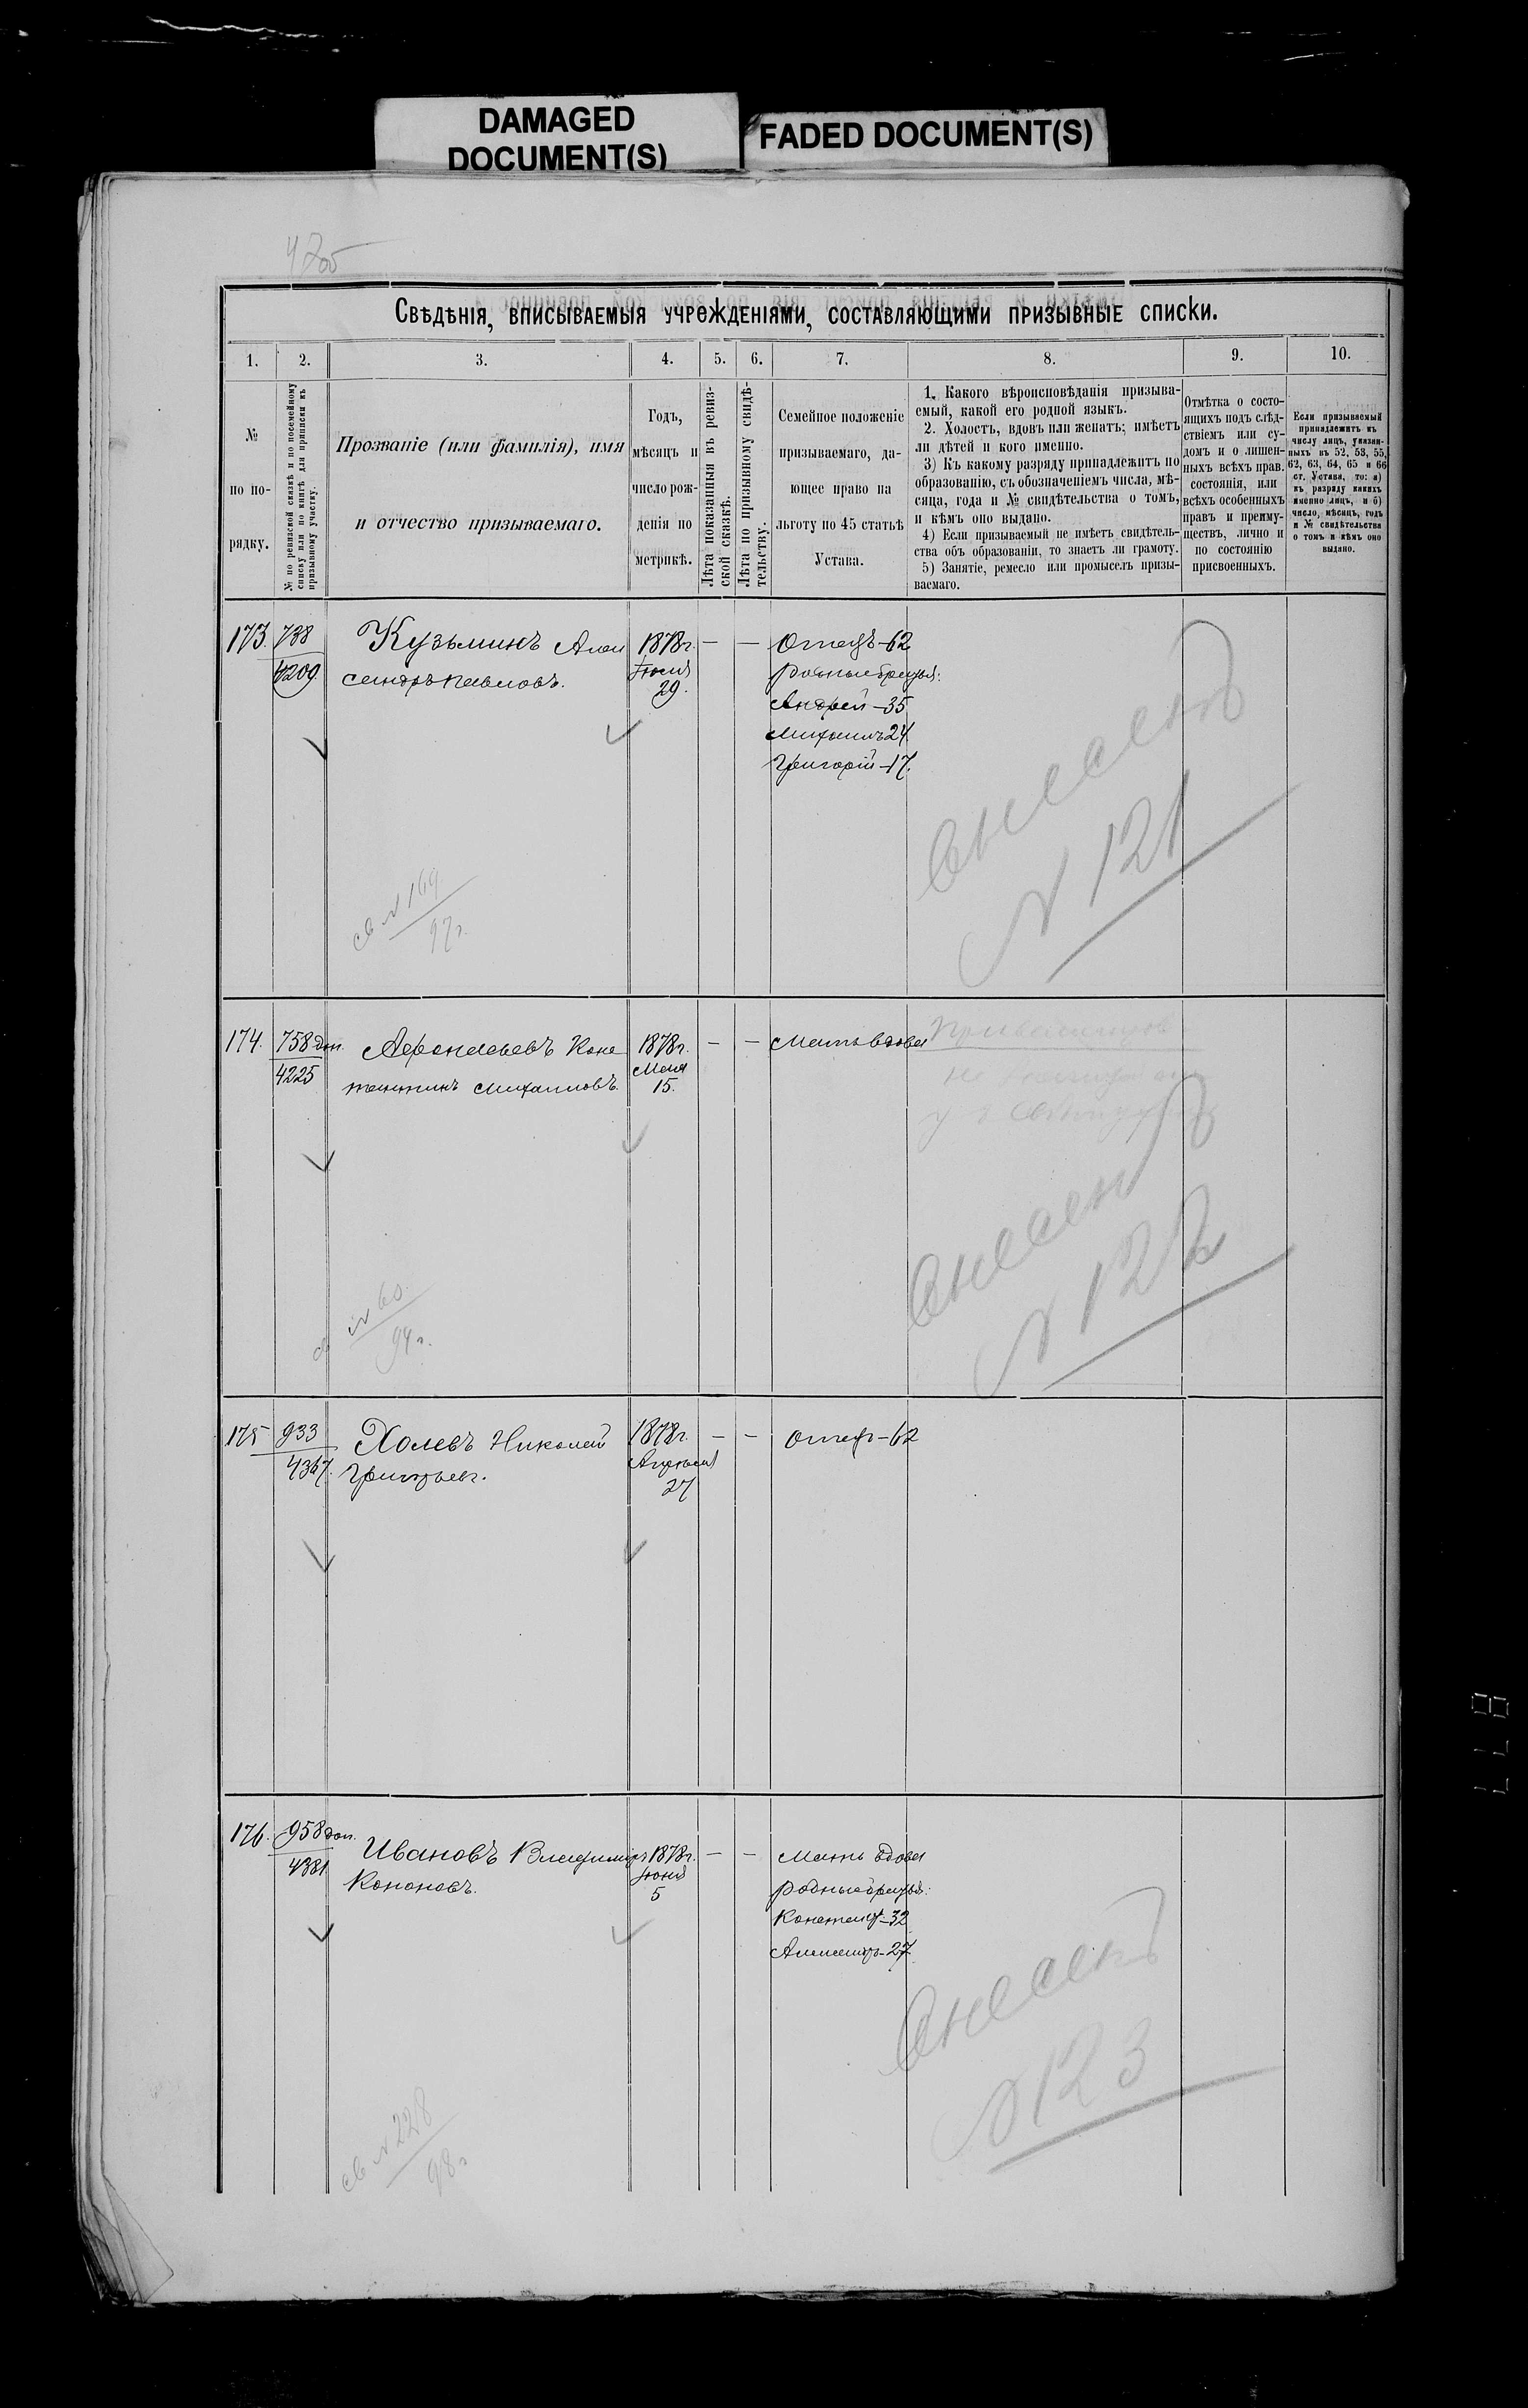 DAMAGED
DOCUMENT(S)
FADED DOCUMENT(S)
Свѣдѣнія, вписываемыя учрежденіями, составляющими призывные списки.
1.
2.
3.
4.
5.
6.
7.
8.
9.
10.
№
по по-
рядку.
№ по ревизской сказкѣ и по посемейному
списку или по книгѣ для приписки къ
призывному участку.
Прозваніе (или фамилія), имя
и отчество призываемаго.
Годъ,
мѣсяцъ и
число рож-
денія по
метрикѣ.
Лѣта показанныя въ ревиз-
ской сказкѣ.
Лѣта по призывному свидѣ-
тельству.
Семейное положеніе
призываемаго, да-
ющее право на
льготу по 45 статьѣ
Устава.
1. Какого вѣроисповѣданія призыва-
емый, какой его родной языкъ.
2. Холостъ, вдовъ или женатъ; имѣетъ
ли дѣтей и кого именно.
3) Къ какому разряду принадлежитъ по
образованію, съ обозначеніемъ числа, мѣ-
сяца, года и № свидѣтельства о томъ,
и кѣмъ оно выдано.
4) Если призываемый не имѣетъ свидѣтель-
ства объ образованіи, то знаетъ ли грамоту.
5) Занятіе, ремесло или промыселъ призы-
ваемаго.
Отмѣтка о состо-
ящихъ подъ слѣд-
ствіемъ или су-
домъ и о лишен-
ныхъ всѣхъ прав.
состоянія, или
всѣхъ особенныхъ
правъ и преиму-
ществъ, лично и
по состоянію
присвоенныхъ.
Если призываемый
принадлежитъ къ
числу лицъ, указан-
ныхъ въ 52, 53, 55,
62, 63, 64, 65 и 66
ст. Устава, то: а)
къ разряду какихъ
именно лицъ, и б)
число, мѣсяцъ, годъ
и № свидѣтельства
о томъ и кѣмъ оно
выдано.
173. 738
4209
Кузьминъ Алек
сандръ Павловъ.
1878 г.
Іюля
29.
— —
Отецъ-62
родные братья:
Андрей-35
Михаилъ 24
Григорій-17.
Внесенъ
№ 121
св №169
97 г.
174. 758 доп.
4225
Афанасьевъ Конс
тантинъ Михаиловъ.
1878 г.
Мая
15.
— —
Мать вдова
Внесенъ
№ 122
св № 60.
94 г.
175 933
4367.
Холевъ Николай
Григорьев.
1878 г.
Апрѣля
27
— —
Отецъ-62
176. 958 доп.
4381
Ивановъ Владиміръ
Кононовъ.
1878 г.
Іюня
5
— —
Мать вдова
родные братья:
Констант-32
Александръ-27
Внесенъ
№ 123
св № 228
98 г
877